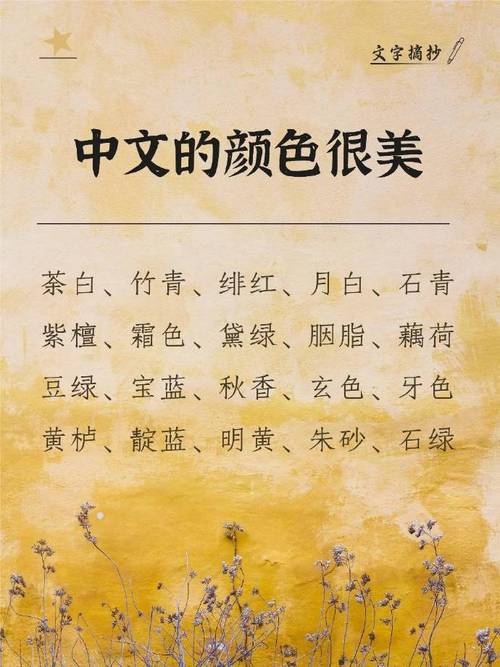 文字摘抄
中文的颜色很美
茶白、竹青、绯红、月白、石青
紫檀、霜色、黛绿、胭脂、藕荷
豆绿、宝蓝、秋香、玄色、牙色
黄栌、靛蓝、明黄、朱砂、石绿